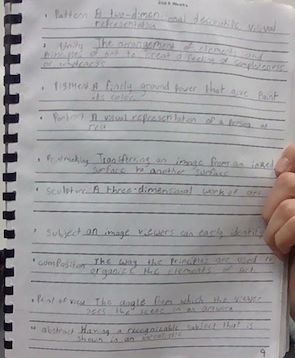 • Pattern A two-dimen onal decorative visual
representation
• Unity The arrangement of elements and
Principles of art to creat a feeling of completeness
or wholeness
• Pigment A finely ground power that give Paint
its color.
• Portrait A visual representation of a Person at
rea
• Printmaking Transferring an image from an inked
surface to another surface
• sculpture A three-dimensional work of art
• subject an image viewers can easily identify
• composition The way the principles are used to
organize the elements of art.
• Point of view The angle from which the viewer
sees the scene in an artwork
• abstract Having a recognizable subject that is
shown in an
9